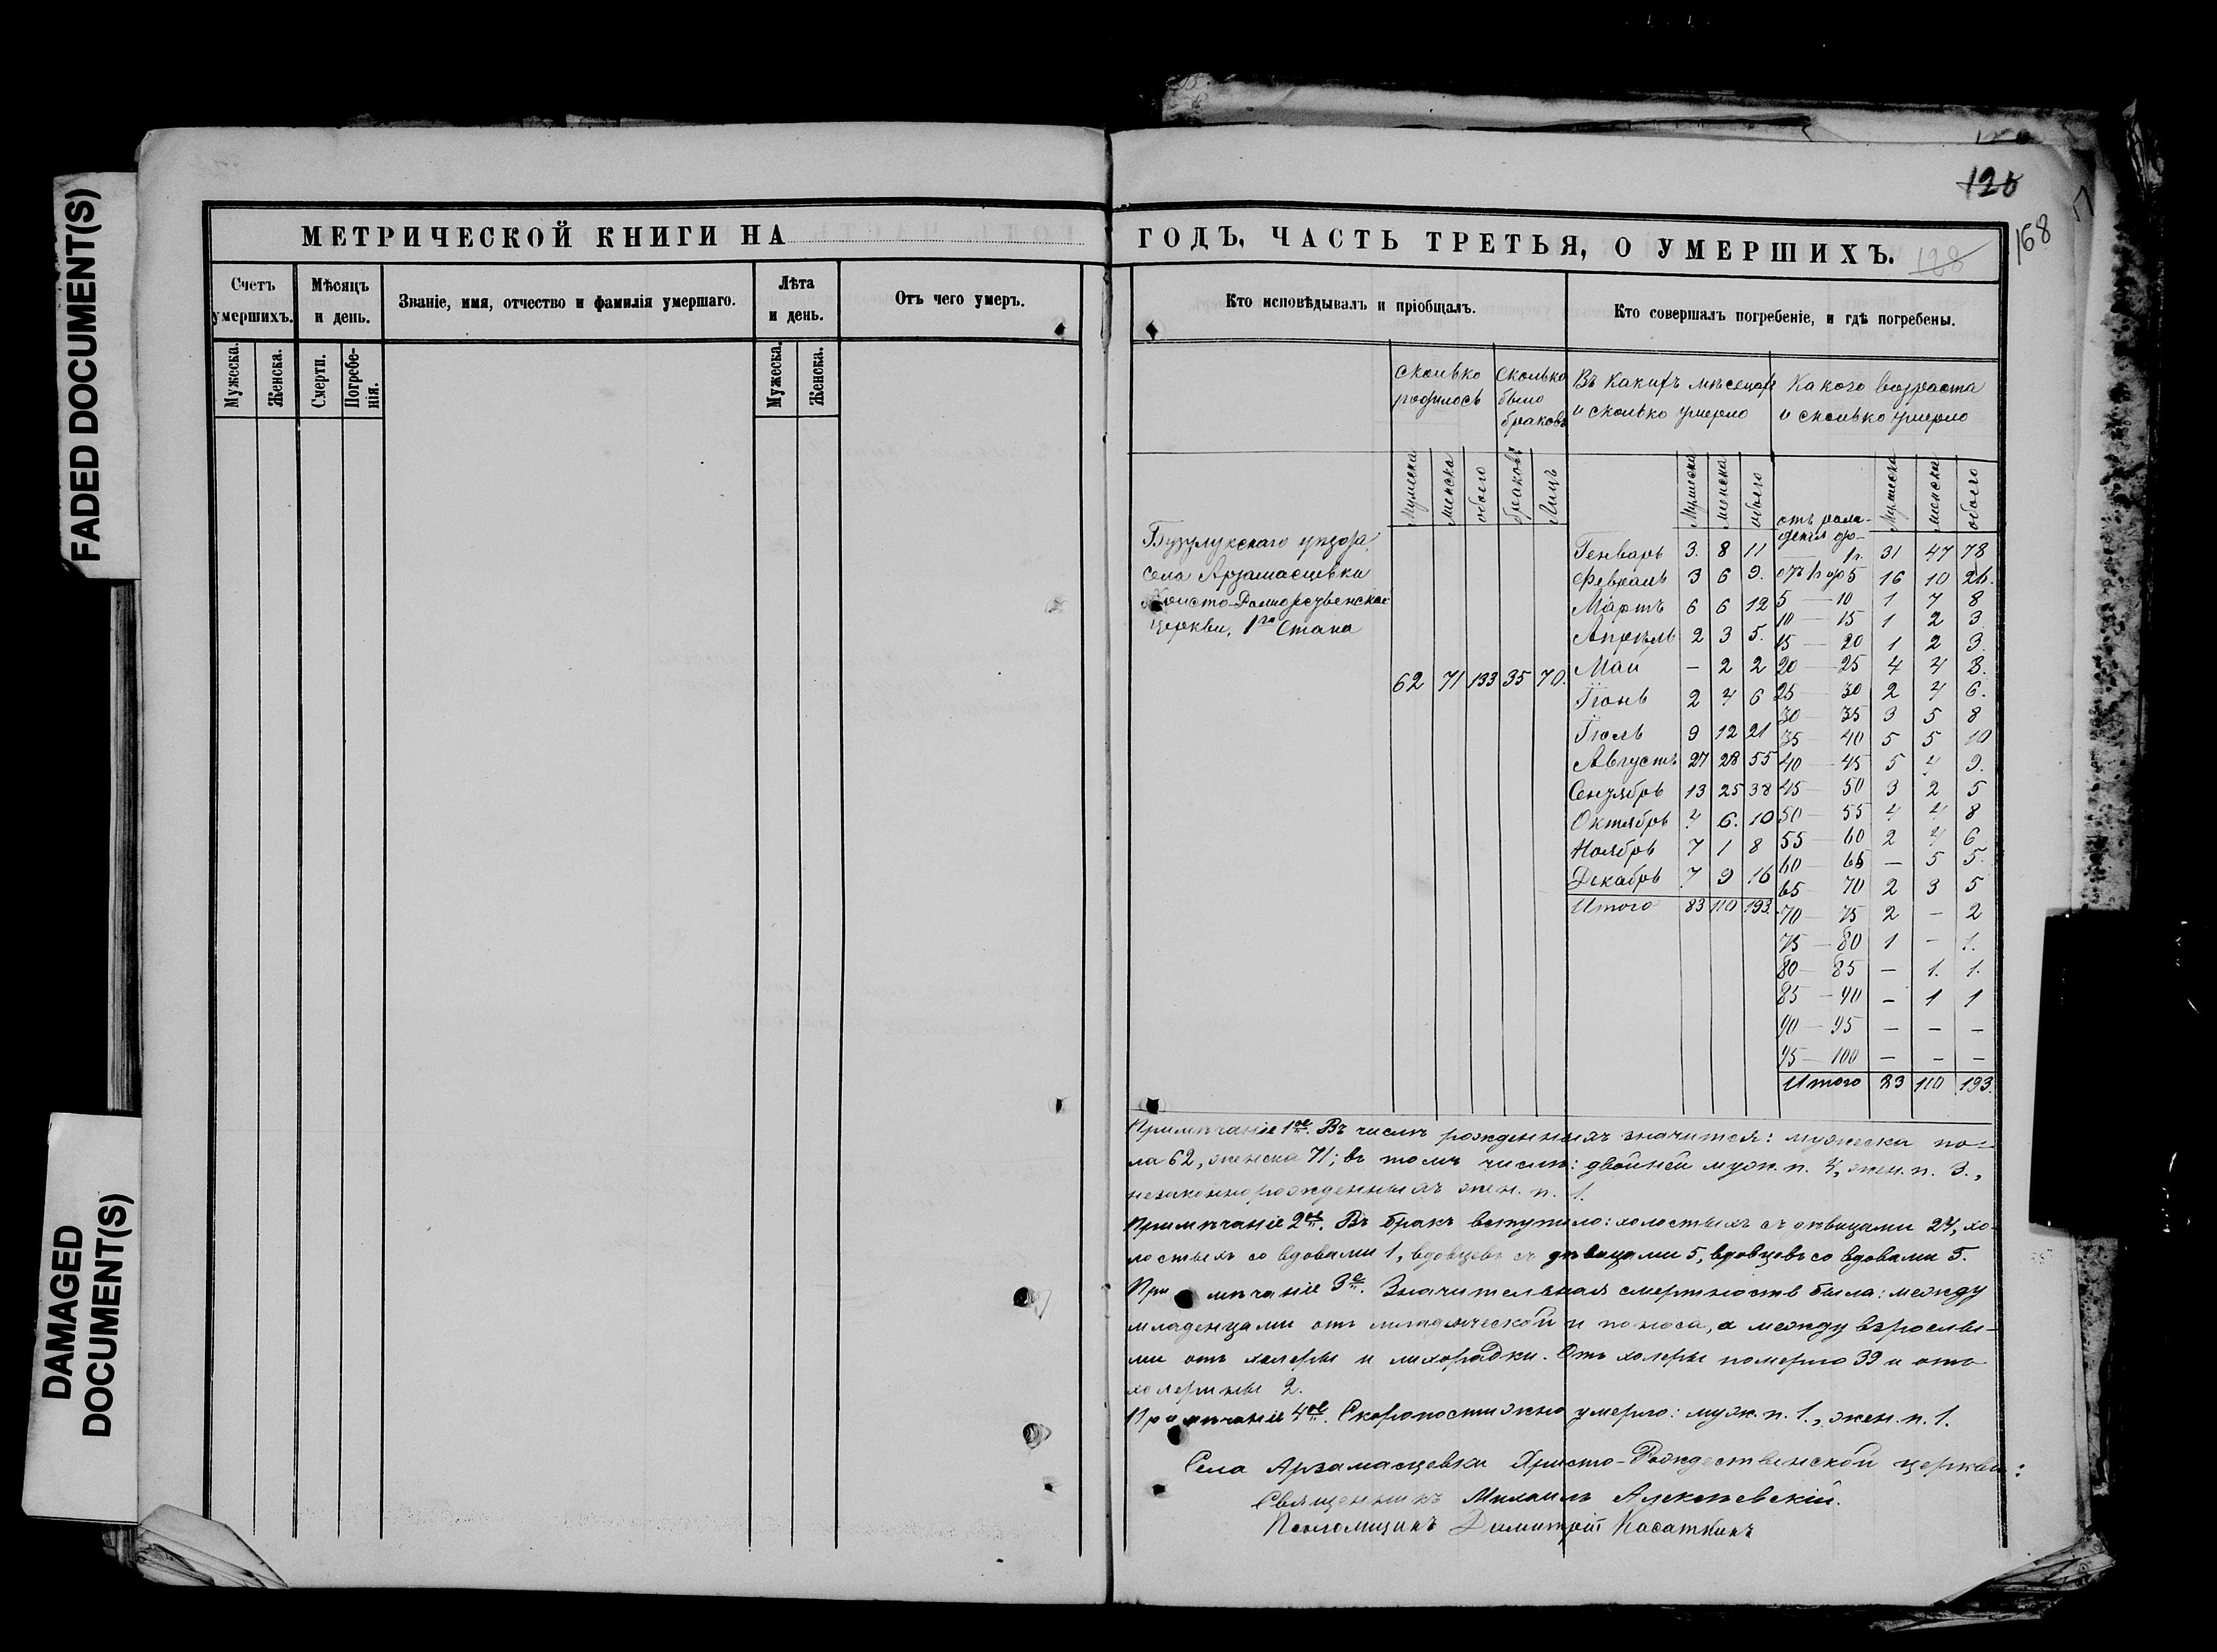 FADED DOCUMENT(S)
DAMAGED
DOCUMENT(S)
МЕТРИЧЕСКОЙ КНИГИ НА
Счетъ умершихъ.
Мѣсяцъ и день.
Званіе, имя, отчество и фамилія умершаго.
Лѣта и день.
Отъ чего умеръ.
Мужеска.
Женска.
Смерти.
Погребе-
нія.
Мужеска.
Женска.
168
ГОДЪ, ЧАСТЬ ТРЕТЬЯ, О УМЕРШИХЪ. 128
Кто исповѣдывалъ и пріобщалъ.
Кто совершалъ погребеніе, и гдѣ погребены.
сколько
родилось
Сколько
было
браковъ
Въ какихъ мѣсецахъ
и сколько умерло
Какого возраста
и сколько умерло
мужеска женска обоего браковъ Лицъ
Мужеска женска обоего
Мужеска женска обоего
Бузулукскаго уѣзда,
села Арзамасцевки
Христо-Рождественской
церкви, 1го Стана
62 71 133 35 70.
Генварь 3. 8 11
Февраль 3 6 9.
Мартъ 6 6 12
Апрѣль 2 3 5.
Май — 2 2
Іюнь 2 4 6
Іюль 9 12 21
Августъ 27 28 55
Сентябрь 13 25 38
Октябрь 4 6. 10
Ноябрь 7 1 8
Декабрь 7 9 16
Итого 83 110 193.
отъ рож-
денія до-
1г. 31 47 78
отъ 1 до 5 16 10 26.
5 — 10 1 7 8
10 — 15 1 2 3
15 — 20 1 2 3.
20 — 25 4 4 8.
25 — 30 2 4 6.
30 — 35 3 5 8
35 — 40 5 5 10
40 — 45 5 4 9.
45 — 50 3 2 5
50 — 55 4 4 8
55 — 60 2 4 6
60 — 65 — 5 5.
65 — 70 2 3 5
70 — 75 2 — 2
75 — 80 1 — 1.
80 — 85 — 1. 1.
85 — 90 — 1 1
90 — 95 — — —
95 — 100 — — —
Итого 83 110 193.
Примѣчаніе 1ое. Въ числѣ рожденныхъ значится: мужеска по-
ла 62, женска 71; въ томъ числѣ: двойней муж. п. 4, жен. п. 3.,
незаконнорожденныхъ жен. п. 1.
Примѣчаніе 2ое. Въ бракъ вступило: холостыхъ съ дѣвицами 24, хо-
лостыхъ со вдовами 1, вдовцевъ съ дѣвицами 5, вдовцевъ со вдовами 5.
Примѣчаніе 3е. Значительная смертность была: между
младенцами отъ младенческой и поноса, а между взрослы-
ми отъ холеры и лихорадки. Отъ холеры померло 39 и отъ
холерины 2.
Примѣчаніе 4ое. Скоропостижно умерло: муж. п. 1., жен. п. 1.
Села Арзамасцевки Христо-Рождественской церкви:
Священникъ Михаилъ Алексѣевскій.
Псаломщикъ Димитрій Касаткинъ